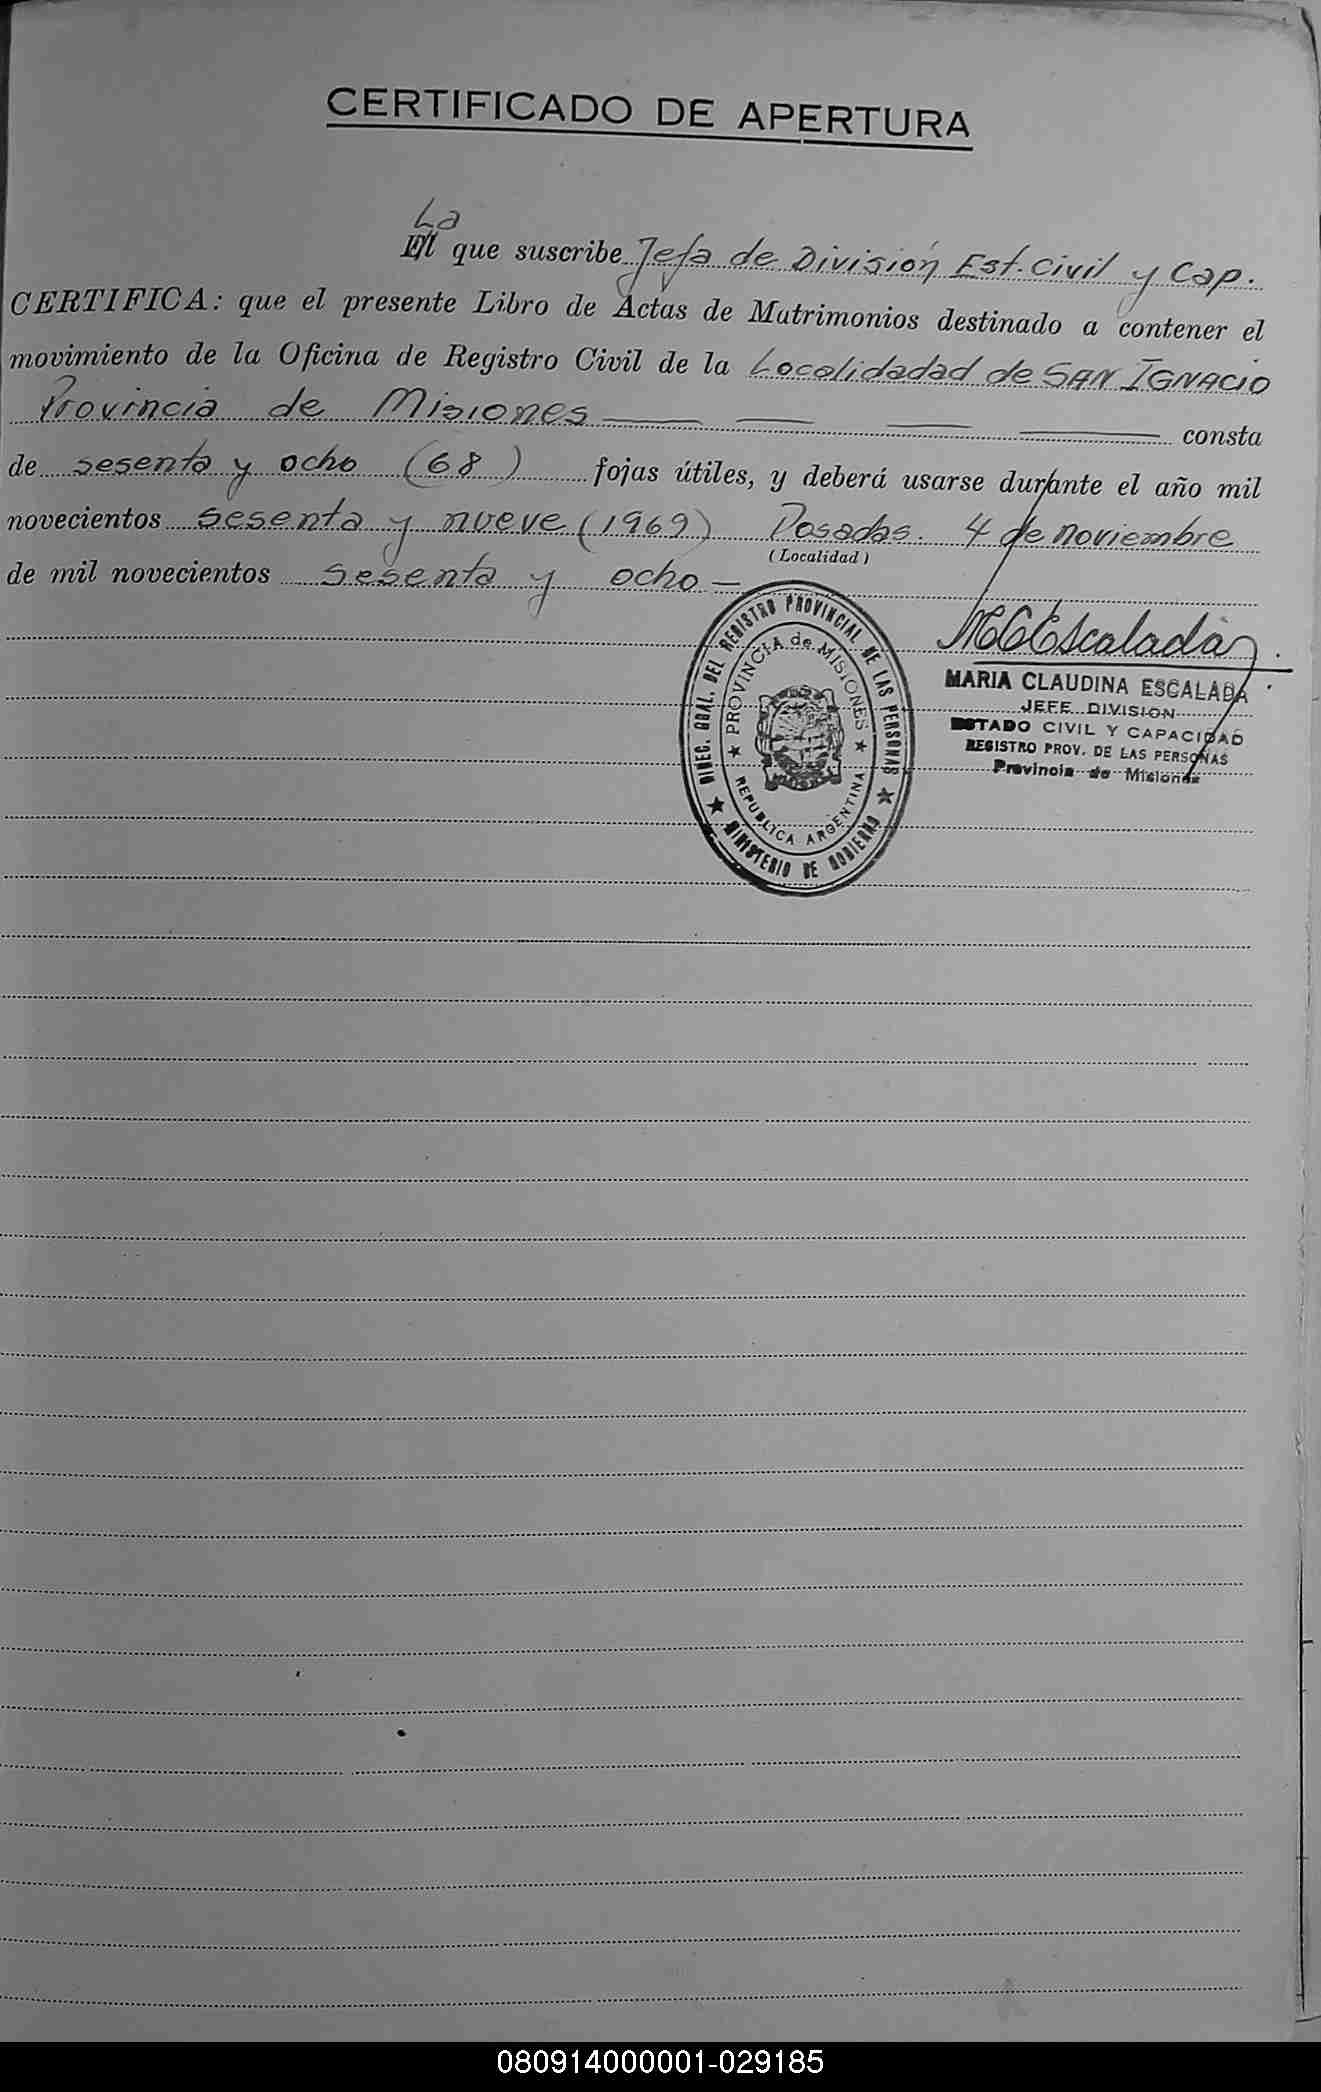 CERTIFICADO DE APERTURA
La
El que suscribe Jefa de División Est. Civil y Cap.
CERTIFICA: que el presente Libro de Actas de Matrimonios destinado a contener el
movimiento de la Oficina de Registro Civil de la Localidadad de SAN IGNACIO
Provincia de Misiones consta
de sesenta y ocho (68) fojas útiles, y deberá usarse durante el año mil
novecientos sesenta y nueve (1969) Posadas. 4 de noviembre
(Localidad)
de mil novecientos sesenta y ocho —
MCEscalada
MARIA CLAUDINA ESCALADA
JEFE DIVISION
ESTADO CIVIL Y CAPACIDAD
REGISTRO PROV. DE LAS PERSONAS
Provincia de Misiones
DIREC. GRAL. DEL REGISTRO PROVINCIAL DE LAS PERSONAS
PROVINCIA de MISIONES
REPUBLICA ARGENTINA
MINISTERIO DE GOBIERNO
080914000001-029185